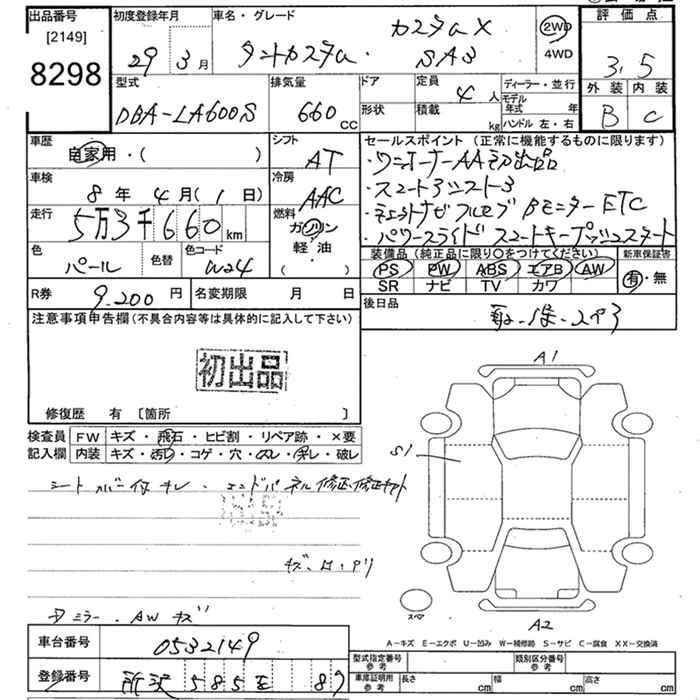 出品番号
[2149]
8298
初度登録年月
29 3月
車名・グレード
カスタムX
タントカスタム SAⅢ
2WD
4WD
評価点
3.5
外装 内装
B C
型式
DBA-LA600S
排気量
660cc
ドア
形状
定員
4人
積載
kg
ディーラー・並行
モデル年式 年
ハンドル 左・右
車歴
自家用・( )
シフト
AT
セールスポイント(正常に機能するものに限ります)
・ワンオーナーAA初出品
・スマートアシスト3
・ナビ フルセグ Bモニター ETC
・パワースライド スマートキープッシュスタート
車検
8年4月(1日)
冷房
AAC
走行
5万3千660km
燃料
ガソリン
軽・油
( )
色
パール
色替
色コード
W24
装備品(純正品に限り〇をつけてください)
PS PW ABS エアB AW
SR ナビ TV カワ
新車保証書
有・無
R券
9,200円
名変期限 月 日
後日品
取・保・
注意事項申告欄(不具合内容等は具体的に記入して下さい)
初出品
修復歴 有 [箇所 ]
検査員
記入欄
FW キズ・飛石・ヒビ割・リペア跡・×要
内装 キズ・汚レ・コゲ・穴・スレ・切レ・破レ
シートカバー付 キレ・エンドパネル修正
キズ・凹・
ミラー・AWキズ
A1
S1
スペア
A2
A-キズ E-エクボ U-凹み W-補修跡 S-サビ C-腐食 XX-交換済
車台番号
0532149
登録番号
所沢 585 を 87
型式指定番号
参考
類別区分番号
参考
車庫証明用
参考
長さ cm
幅 cm
高さ cm